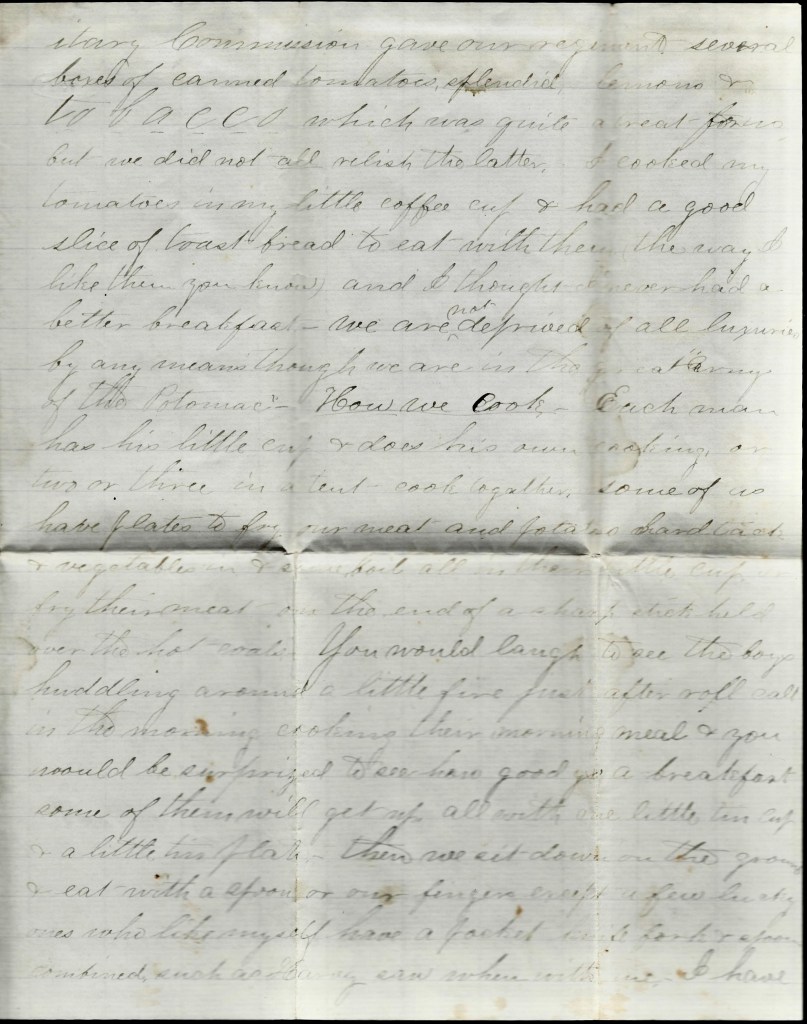 itary Commission gave our regiment several
boxes of canned tomatoes, splendid, lemons &
tobacco which was quite a treat for us,
but we did not all relish the latter. I cooked my
tomatoes in my little coffee cup & had a good
slice of toast bread to eat with them (the way I
like them you know) and I thought I never had a
better breakfast – we are not deprived of all luxuries
by any means though we are in the great "Army
of the Potomac" – How we Cook – Each man
has his little cup & does his own cooking, or
two or three in a tent cook together, some of us
have plates to fry our meat and potatoes hard tack
& vegetables in & some boil all in their little cup or
fry their meat on the end of a sharp stick held
over the hot coals. You would laugh to see the boys
huddling around a little fire just after roll call
in the morning cooking their morning meal & you
would be surprized to see how good a breakfast
some of them will get up all with one little tin cup
& a little tin plate – then we sit down on the ground
& eat with a spoon or our fingers except a few lucky
ones who like myself have a pocket knife fork & spoon
combined, such as saw when with me – I have